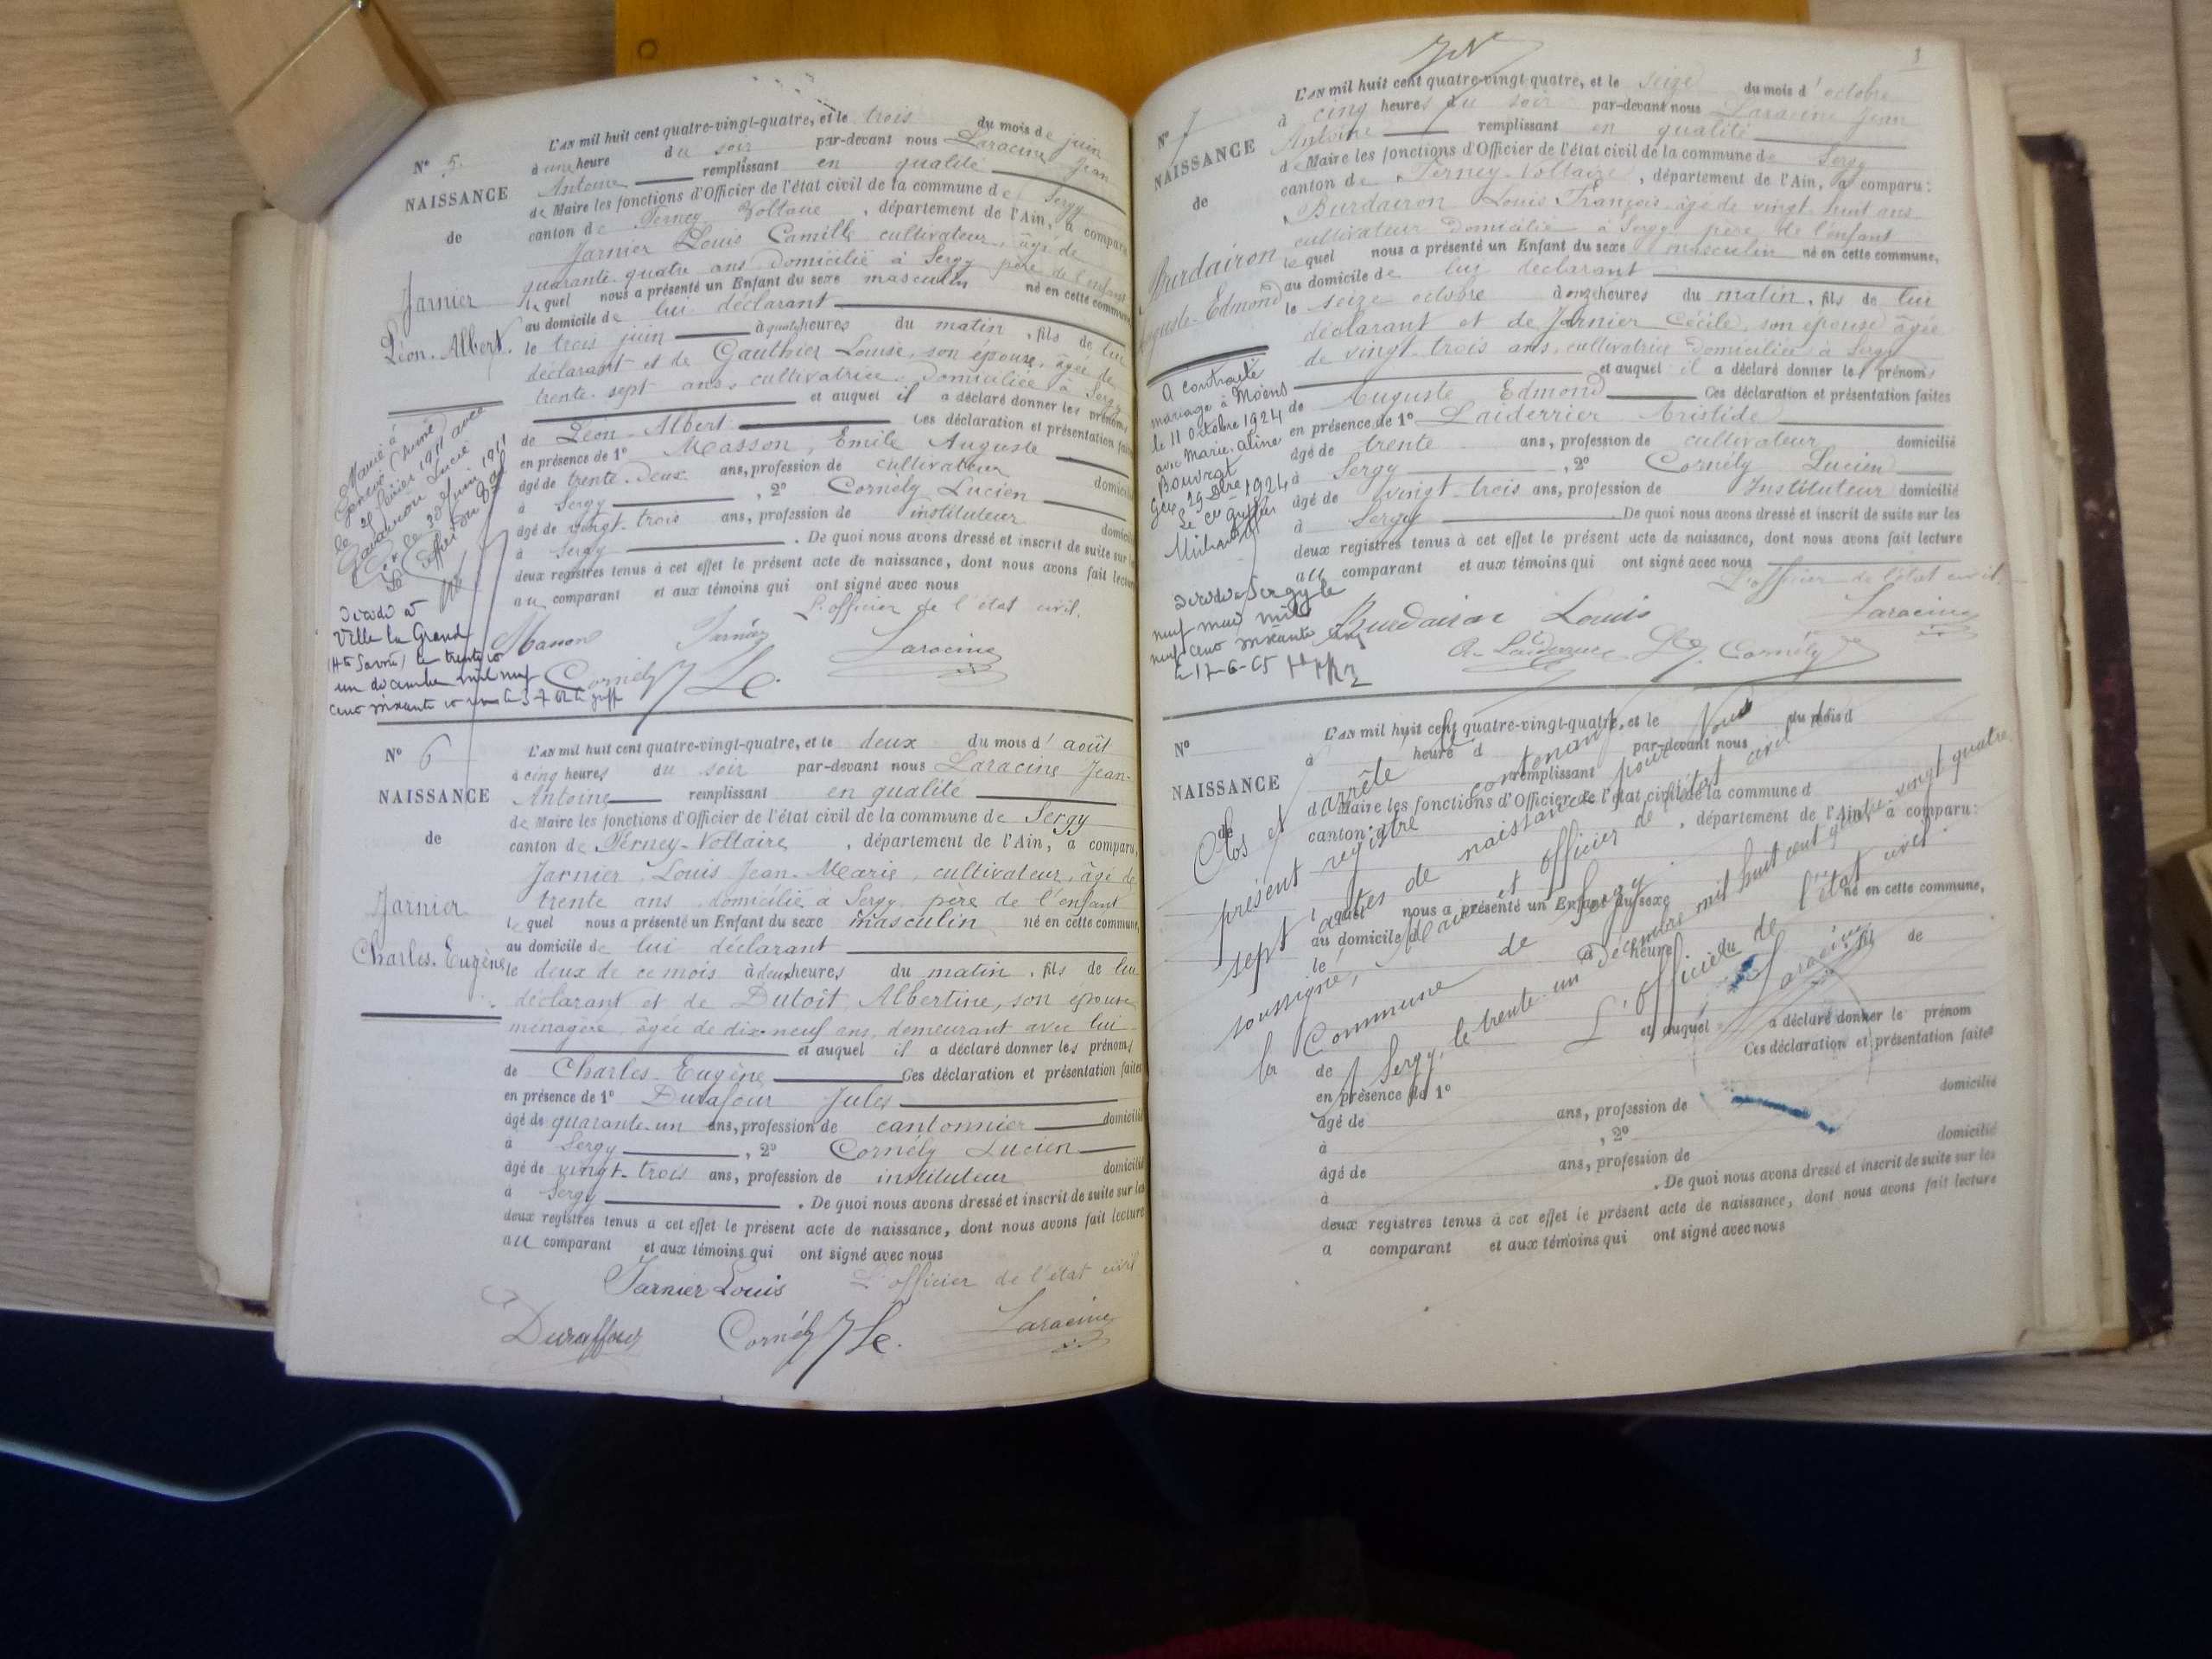 N° 5.
NAISSANCE
de
Jarnier
Léon-Albert.
L'AN mil huit cent quatre-vingt-quatre, et le trois du mois de juin
à une heure du soir par-devant nous Laracine Jean
Antoine remplissant en qualité
de Maire les fonctions d'Officier de l'état civil de la commune de Sergy
canton de Ferney Voltaire, département de l'Ain, a comparu
Jarnier Louis Camille cultivateur, âgé de
quarante-quatre ans domicilié à Sergy père de l'enfant
lequel nous a présenté un Enfant du sexe masculin né en cette commune,
au domicile de lui déclarant
le trois juin à quatre heures du matin, fils de lui
déclarant et de Gauthier Louise, son épouse, âgée de
trente-sept ans, cultivatrice, domiciliée à Sergy
et auquel il a déclaré donner les prénoms
de Léon-Albert Ces déclaration et présentation faites
en présence de 1° Masson, Emile Auguste
âgé de trente-deux ans, profession de cultivateur domicilié
à Sergy, 2° Cornély Lucien
âgé de vingt-trois ans, profession de instituteur domicilié
à Sergy. De quoi nous avons dressé et inscrit de suite sur les
deux registres tenus à cet effet le présent acte de naissance, dont nous avons fait lecture
au comparant et aux témoins qui ont signé avec nous
L'officier de l'état civil.
Masson Jarnier Laracine
Cornély
Marié à
Genève
1911 avec
Lucie
juin 1911
Décédé à
Ville la Grand
(Hte Savoie) le trente et
un décembre mil neuf
cent soixante et un
N° 6
NAISSANCE
de
Jarnier
Charles-Eugène
L'AN mil huit cent quatre-vingt-quatre, et le deux du mois d'août
à cinq heures du soir par-devant nous Laracine Jean-
Antoine remplissant en qualité
de Maire les fonctions d'Officier de l'état civil de la commune de Sergy
canton de Ferney-Voltaire, département de l'Ain, a comparu,
Jarnier, Louis Jean-Marie, cultivateur, âgé de
trente ans, domicilié à Sergy, père de l'enfant
lequel nous a présenté un Enfant du sexe masculin né en cette commune,
au domicile de lui déclarant
le deux de ce mois à deux heures du matin, fils de lui
déclarant et de Dutoit, Albertine, son épouse
ménagère, âgée de dix-neuf ans, demeurant avec lui
et auquel il a déclaré donner les prénoms
de Charles-Eugène Ces déclaration et présentation faites
en présence de 1° Durafour Jules
âgé de quarante-un ans, profession de cantonnier domicilié
à Sergy, 2° Cornély Lucien
âgé de vingt-trois ans, profession de instituteur domicilié
à Sergy. De quoi nous avons dressé et inscrit de suite sur les
deux registres tenus à cet effet le présent acte de naissance, dont nous avons fait lecture
au comparant et aux témoins qui ont signé avec nous
Jarnier Louis L'officier de l'état civil
Duraffour Cornély Laracine
N° 7
NAISSANCE
de
Burdairon
Auguste-Edmond
L'AN mil huit cent quatre-vingt-quatre, et le seize du mois d'octobre
à cinq heures du soir par-devant nous Laracine Jean
Antoine remplissant en qualité
de Maire les fonctions d'Officier de l'état civil de la commune de Sergy
canton de Ferney-Voltaire, département de l'Ain, a comparu:
Burdairon Louis François âgé de vingt-huit ans
cultivateur domicilié à Sergy père de l'enfant
lequel nous a présenté un Enfant du sexe masculin né en cette commune,
au domicile de lui déclarant
le seize octobre à onze heures du matin, fils de lui
déclarant et de Jarnier Cécile, son épouse âgée
de vingt-trois ans, cultivatrice domiciliée à Sergy
et auquel il a déclaré donner les prénoms
de Auguste Edmond Ces déclaration et présentation faites
en présence de 1° Laiderrier Aristide
âgé de trente ans, profession de cultivateur domicilié
à Sergy, 2° Cornély Lucien
âgé de vingt-trois ans, profession de Instituteur domicilié
à Sergy. De quoi nous avons dressé et inscrit de suite sur les
deux registres tenus à cet effet le présent acte de naissance, dont nous avons fait lecture
au comparant et aux témoins qui ont signé avec nous
L'officier de l'état civil.
Burdairon Louis Laracine
Cornély
A contracté
mariage à Moëns
le 11 Octobre 1924
avec Marie-Aline
Bouvrat
Gex, 29 1924
Décédé à Sergy le
neuf mai mil
neuf cent soixante cinq
N°
NAISSANCE
de
L'AN mil huit cent quatre-vingt-quatre, et le du mois d
à heure d par-devant nous
remplissant
d Maire les fonctions d'Officier de l'état civil de la commune d
canton d , département de l'Ain, a comparu:
l quel nous a présenté un Enfant du sexe né en cette commune,
au domicile d
le à heure du de
et auquel a déclaré donner le prénom
de Ces déclaration et présentation faites
en présence de 1°
âgé de ans, profession de domicilié
à , 2°
âgé de ans, profession de domicilié
à . De quoi nous avons dressé et inscrit de suite sur les
deux registres tenus à cet effet le présent acte de naissance, dont nous avons fait lecture
a comparant et aux témoins qui ont signé avec nous
Clos et arrêté le
présent registre contenant
sept actes de naissance par Nous
soussigné, Maire et officier de l'état civil de
la Commune de Sergy.
Sergy, le trente-un décembre mil huit cent quatre-vingt quatre
L'officier de l'état civil.
Laracine